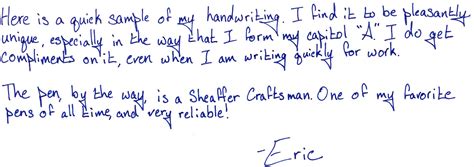 Here is a quick sample of my handwriting. I find it to be pleasantly
unique, especially in the way that I form my capitol "A". I do get
compliments on it, even when I am writing quickly for work.
The pen, by the way, is a Sheaffer Craftsman. One of my favorite
pens of all time, and very reliable!
-Eric